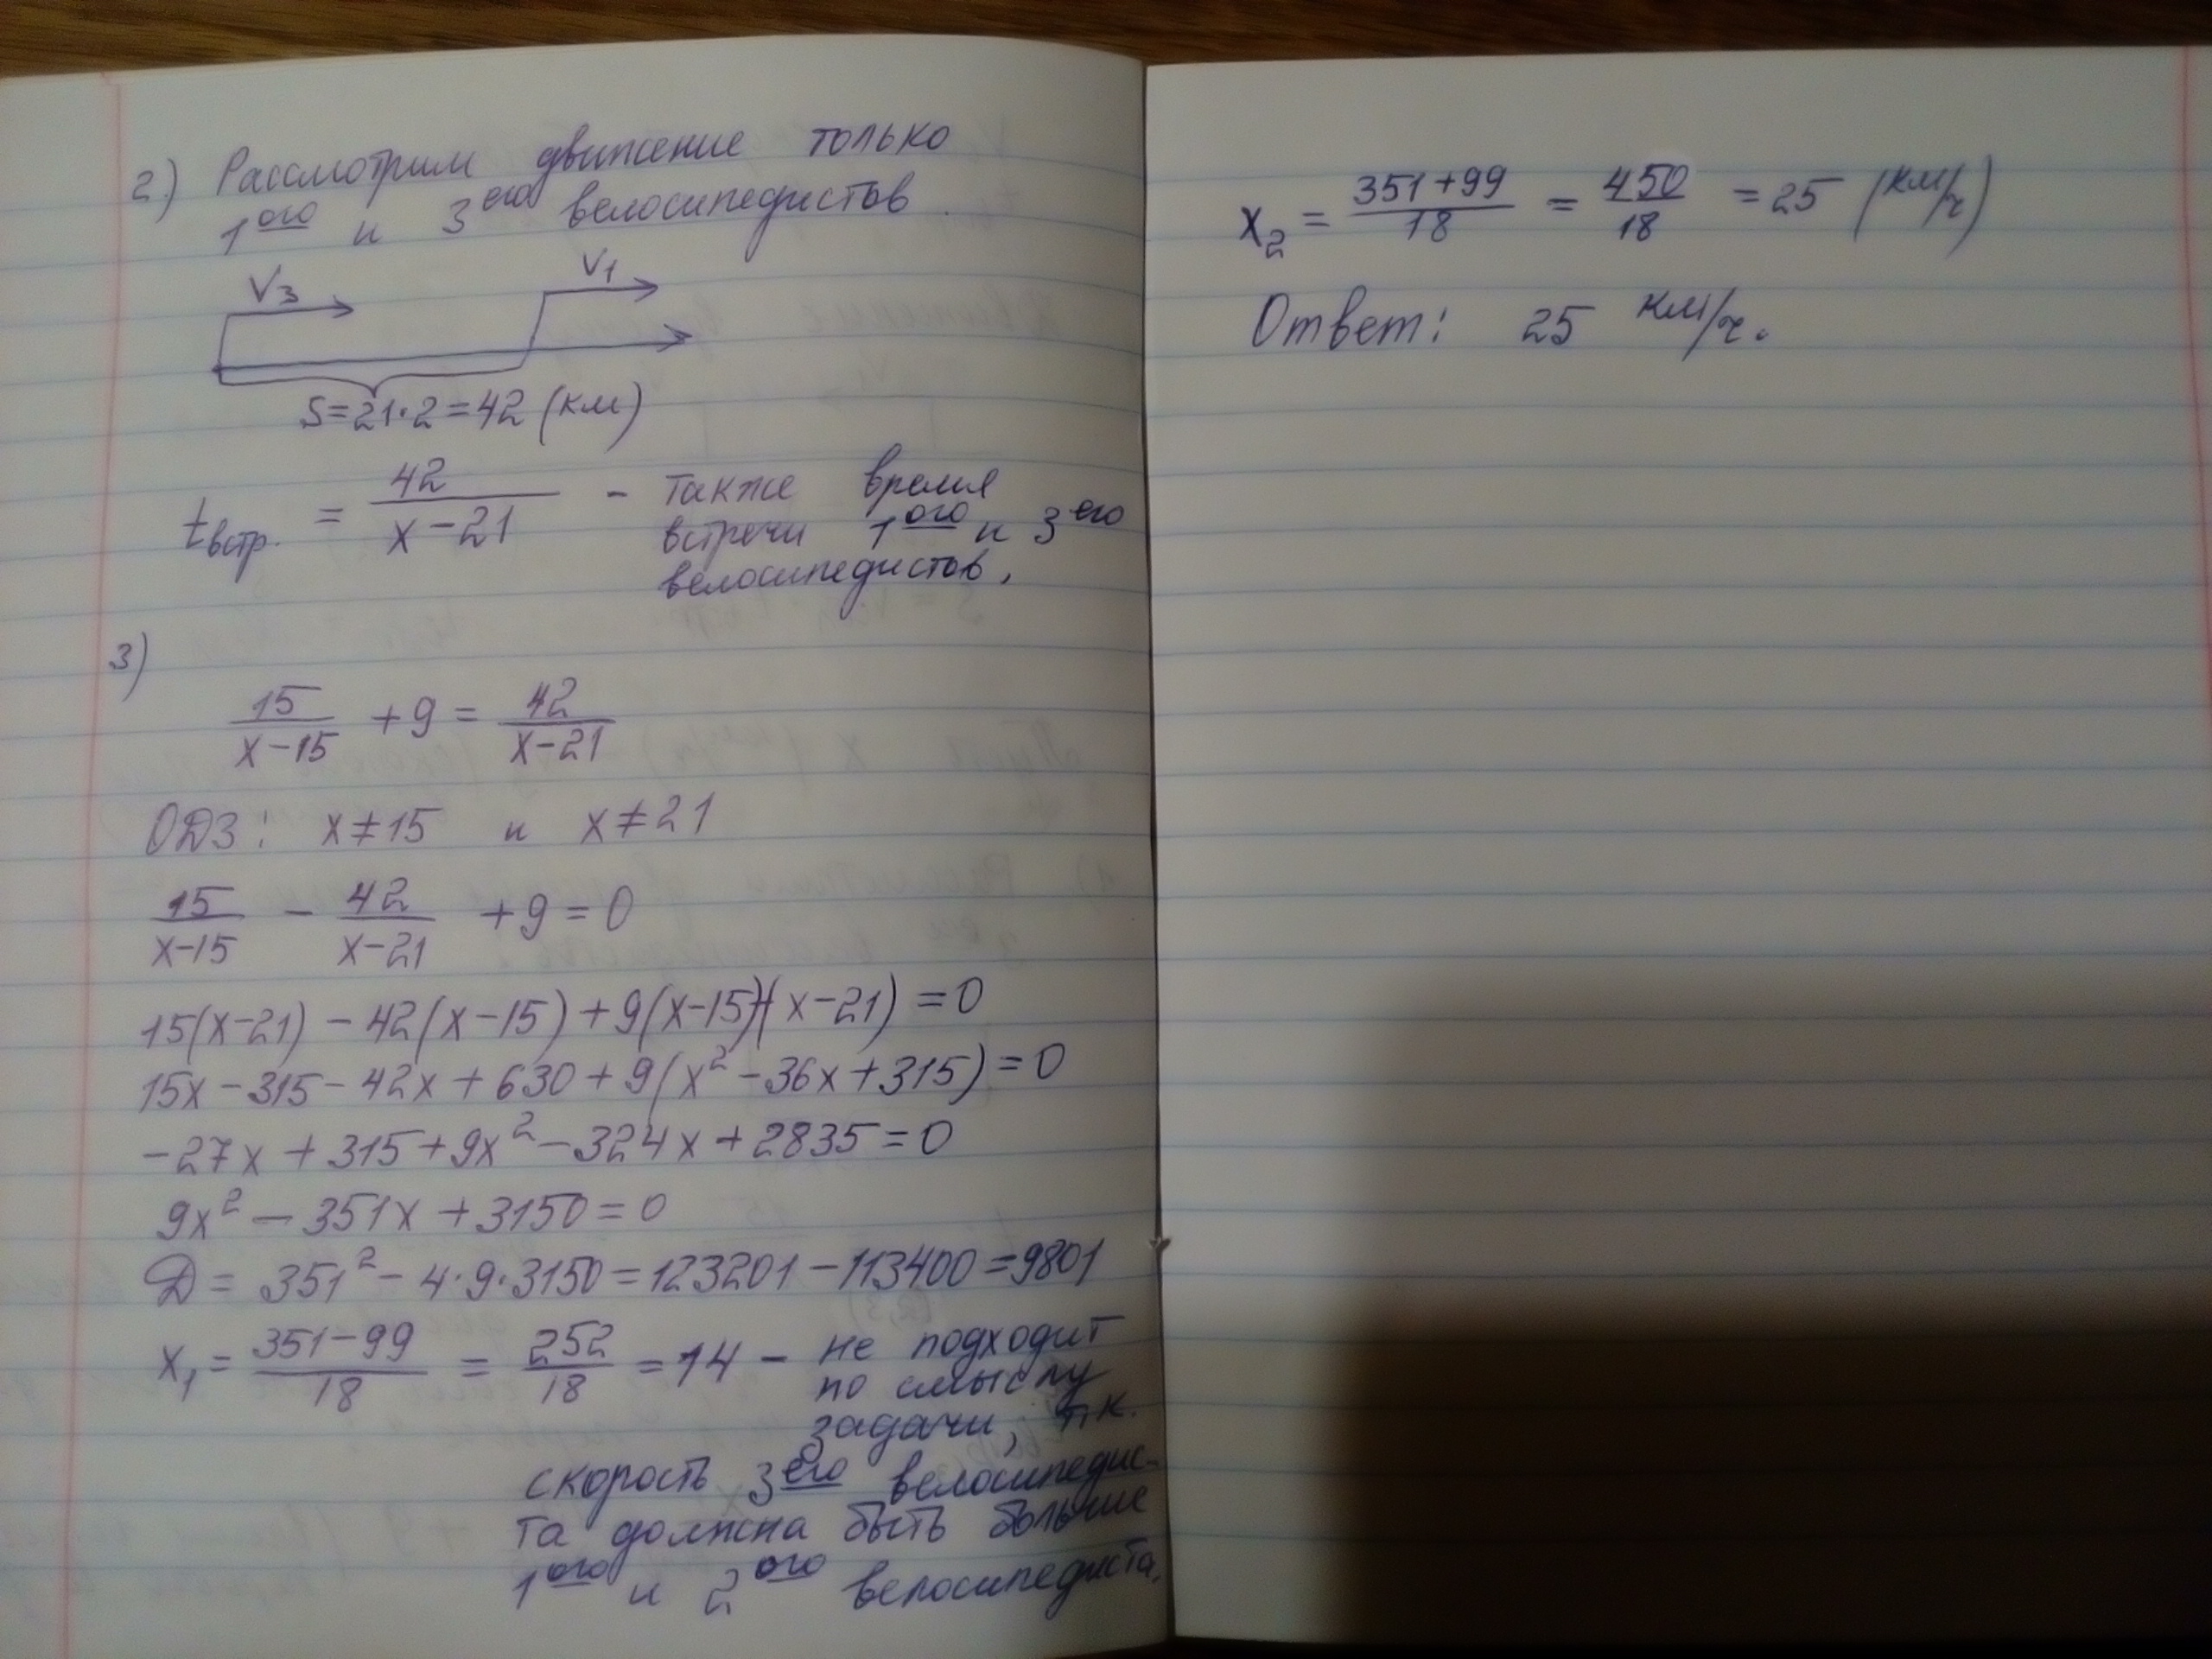 2.) Рассмотрим движение только
1ого и 3его велосипедистов.
V3 V1
S=21·2=42 (км)
tвстр. = 42/(x-21) - также время
встречи 1ого и 3его
велосипедистов,
3)
15/(x-15) +9 = 42/(x-21)
ОДЗ: x≠15 и x≠21
15/(x-15) - 42/(x-21) +9=0
15(x-21) - 42(x-15) + 9(x-15)(x-21) =0
15x-315-42x+630+9(x²-36x+315)=0
-27x+315+9x²-324x+2835=0
9x²-351x+3150=0
D= 351²-4·9·3150=123201-113400=9801
x₁ = (351-99)/18 = 252/18 =14 - не подходит
по смыслу
задачи, т.к.
скорость 3его велосипедис-
та должна быть больше
1ого и 2ого велосипедиста.
x₂ = (351+99)/18 = 450/18 =25 (км/ч)
Ответ: 25 км/ч.